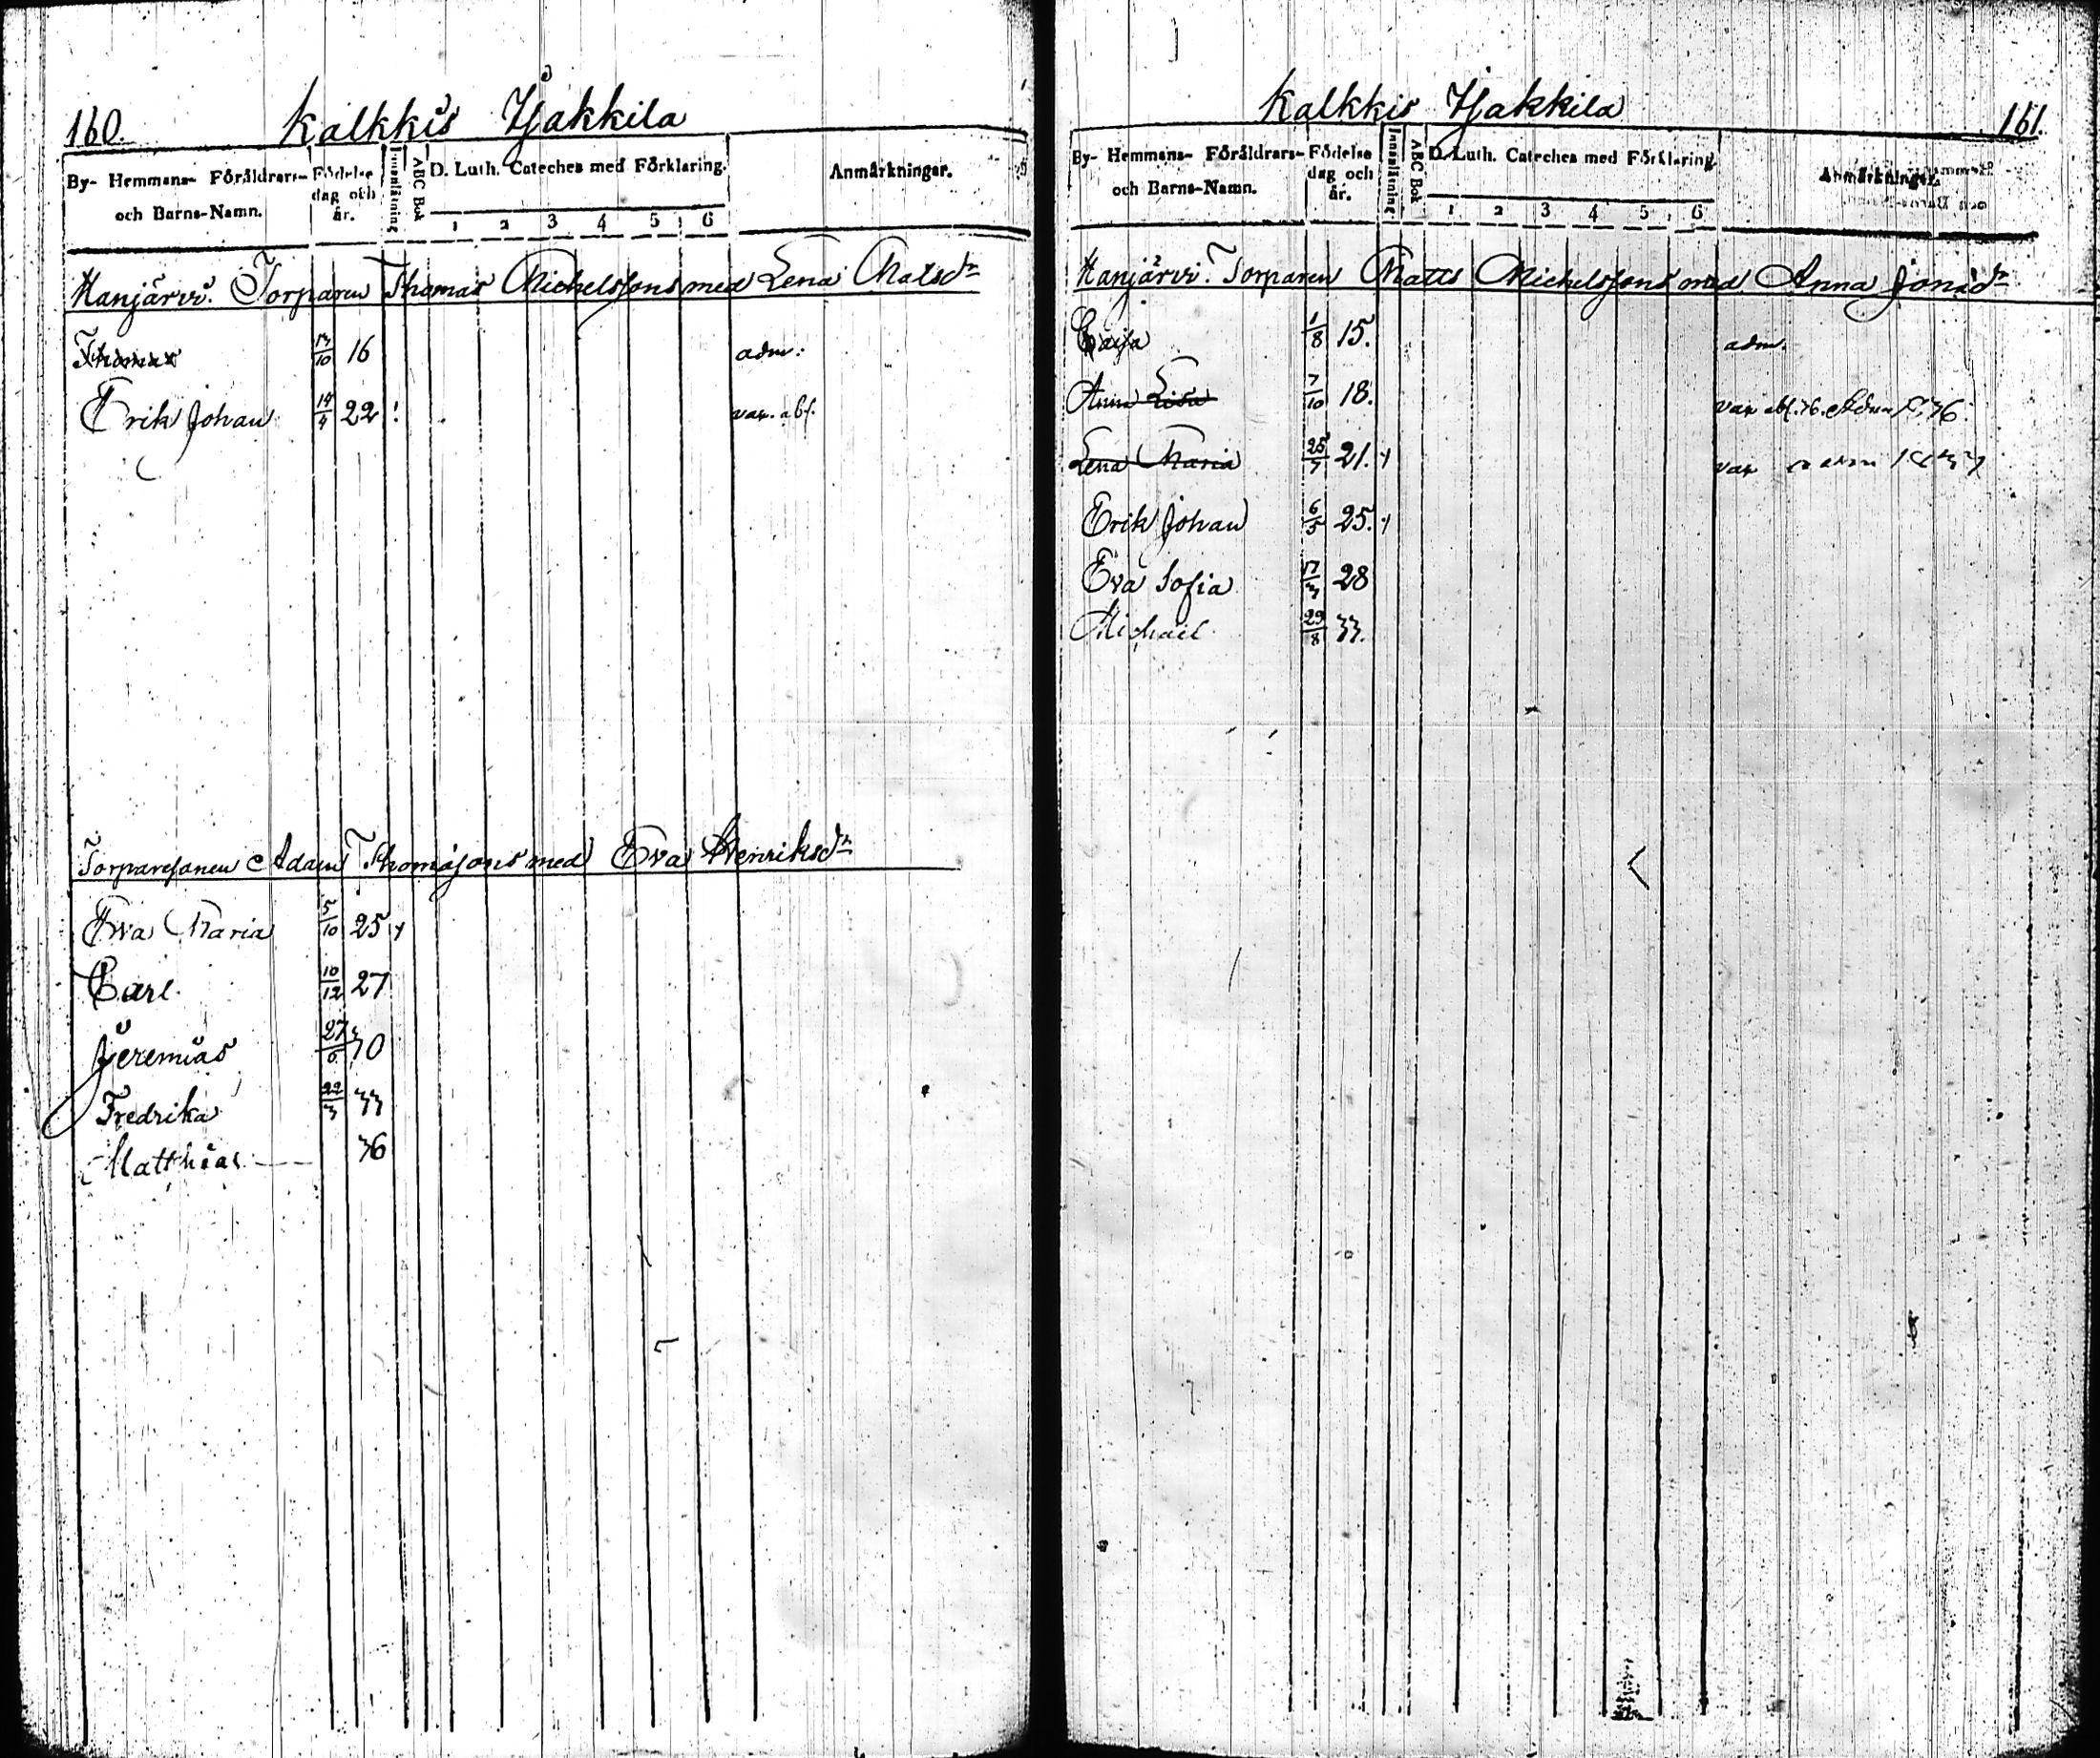 160.
Kalkkis Yjakkila
By- Hemmans- Föräldrars- och Barns-Namn. Födelse dag och år. Innanläsning ABC Bok D. Luth. Cateches med Förklaring. Anmärkningar.
1 2 3 4 5 6
Hanjärvi. Torparen Thomas Michelssons med Lena Matsdr
Thomas 10 16 adm:
Erik Johan 14/4 22 var. abs.
Torparesonen Adam Thomasons med Eva Henriksdr
Eva Maria 5/10 25
Carl 10/12 27
Jeremias 27/6 30
Fredrika 22/3 33
Matthias 36
Kalkkis Yjakkila
161.
By- Hemmans- Föräldrars- och Barns-Namn. Födelse dag och år. Innanläsning ABC Bok D. Luth. Cateches med Förklaring. Anmärkningar.
1 2 3 4 5 6
Hanjärvi. Torparen Matts Michelssons med Anna Jonasdr
Caisa 1/8 15. adm.
Anna Lisa 7/10 18. var abs. 36.
Lena Maria 25/7 21. var
Erik Johan 6/5 25.
Eva Sofia 17/3 28
Michael 29/8 33.